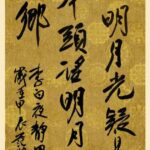 明月光疑是
舉頭望明月
鄉
李白夜靜思
甲辰